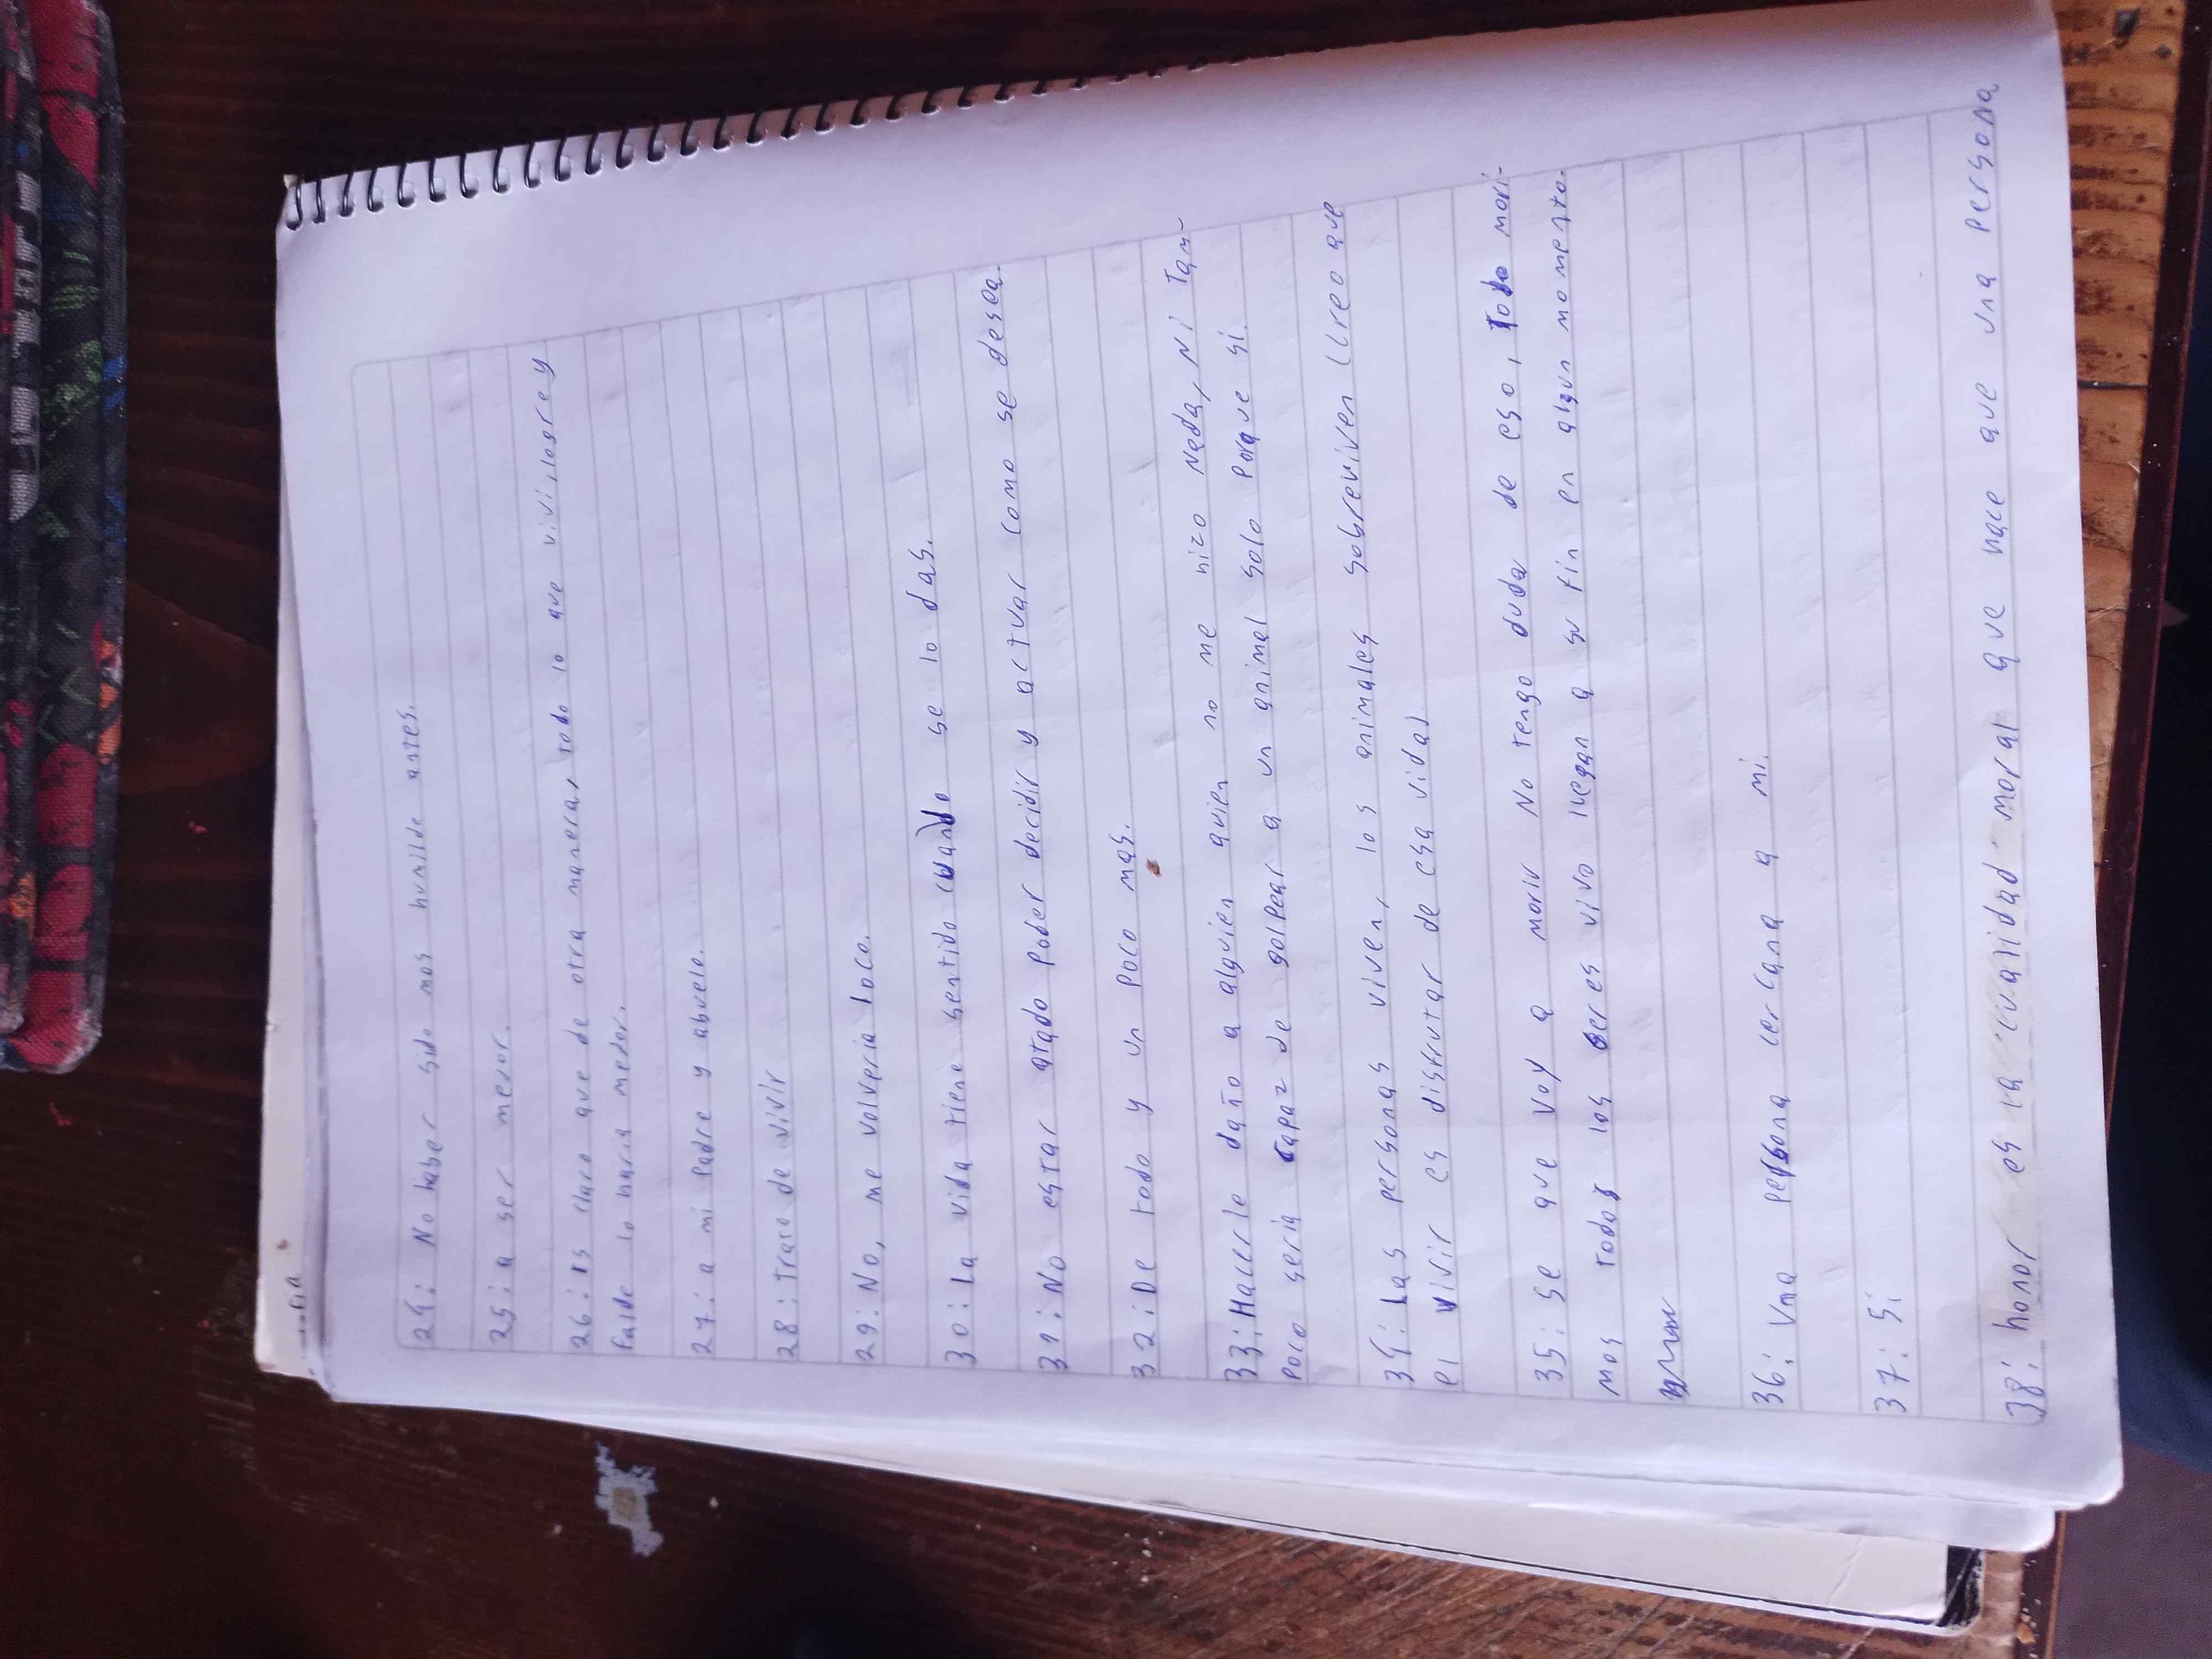 24: No haber sido mas humilde antes.
25: a ser mejor.
26: es claro que de otra manera, todo lo que vivi, logre y
falle lo haria mejor.
27: a mi padre y abuelo.
28: trato de vivir
29: No, me volveria loco.
30: La vida tiene sentido cuando se lo das.
31: No estar atado poder decidir y actuar como se desea.
32: De todo y un poco mas.
33: Hacerle daño a alguien quien no me hizo nada, Ni Tam-
poco seria capaz de golpear a un animal solo porque si.
34: Las personas viven, los animales sobreviven (creo que
el vivir es disfrutar de esa vida).
35: se que voy a morir No tengo duda de eso, todo mori-
mos todos los seres vivo llegan a su fin en algun momento.
36: Una persona cercana a mi.
37: Si
38: honor es la cualidad moral que hace que una persona